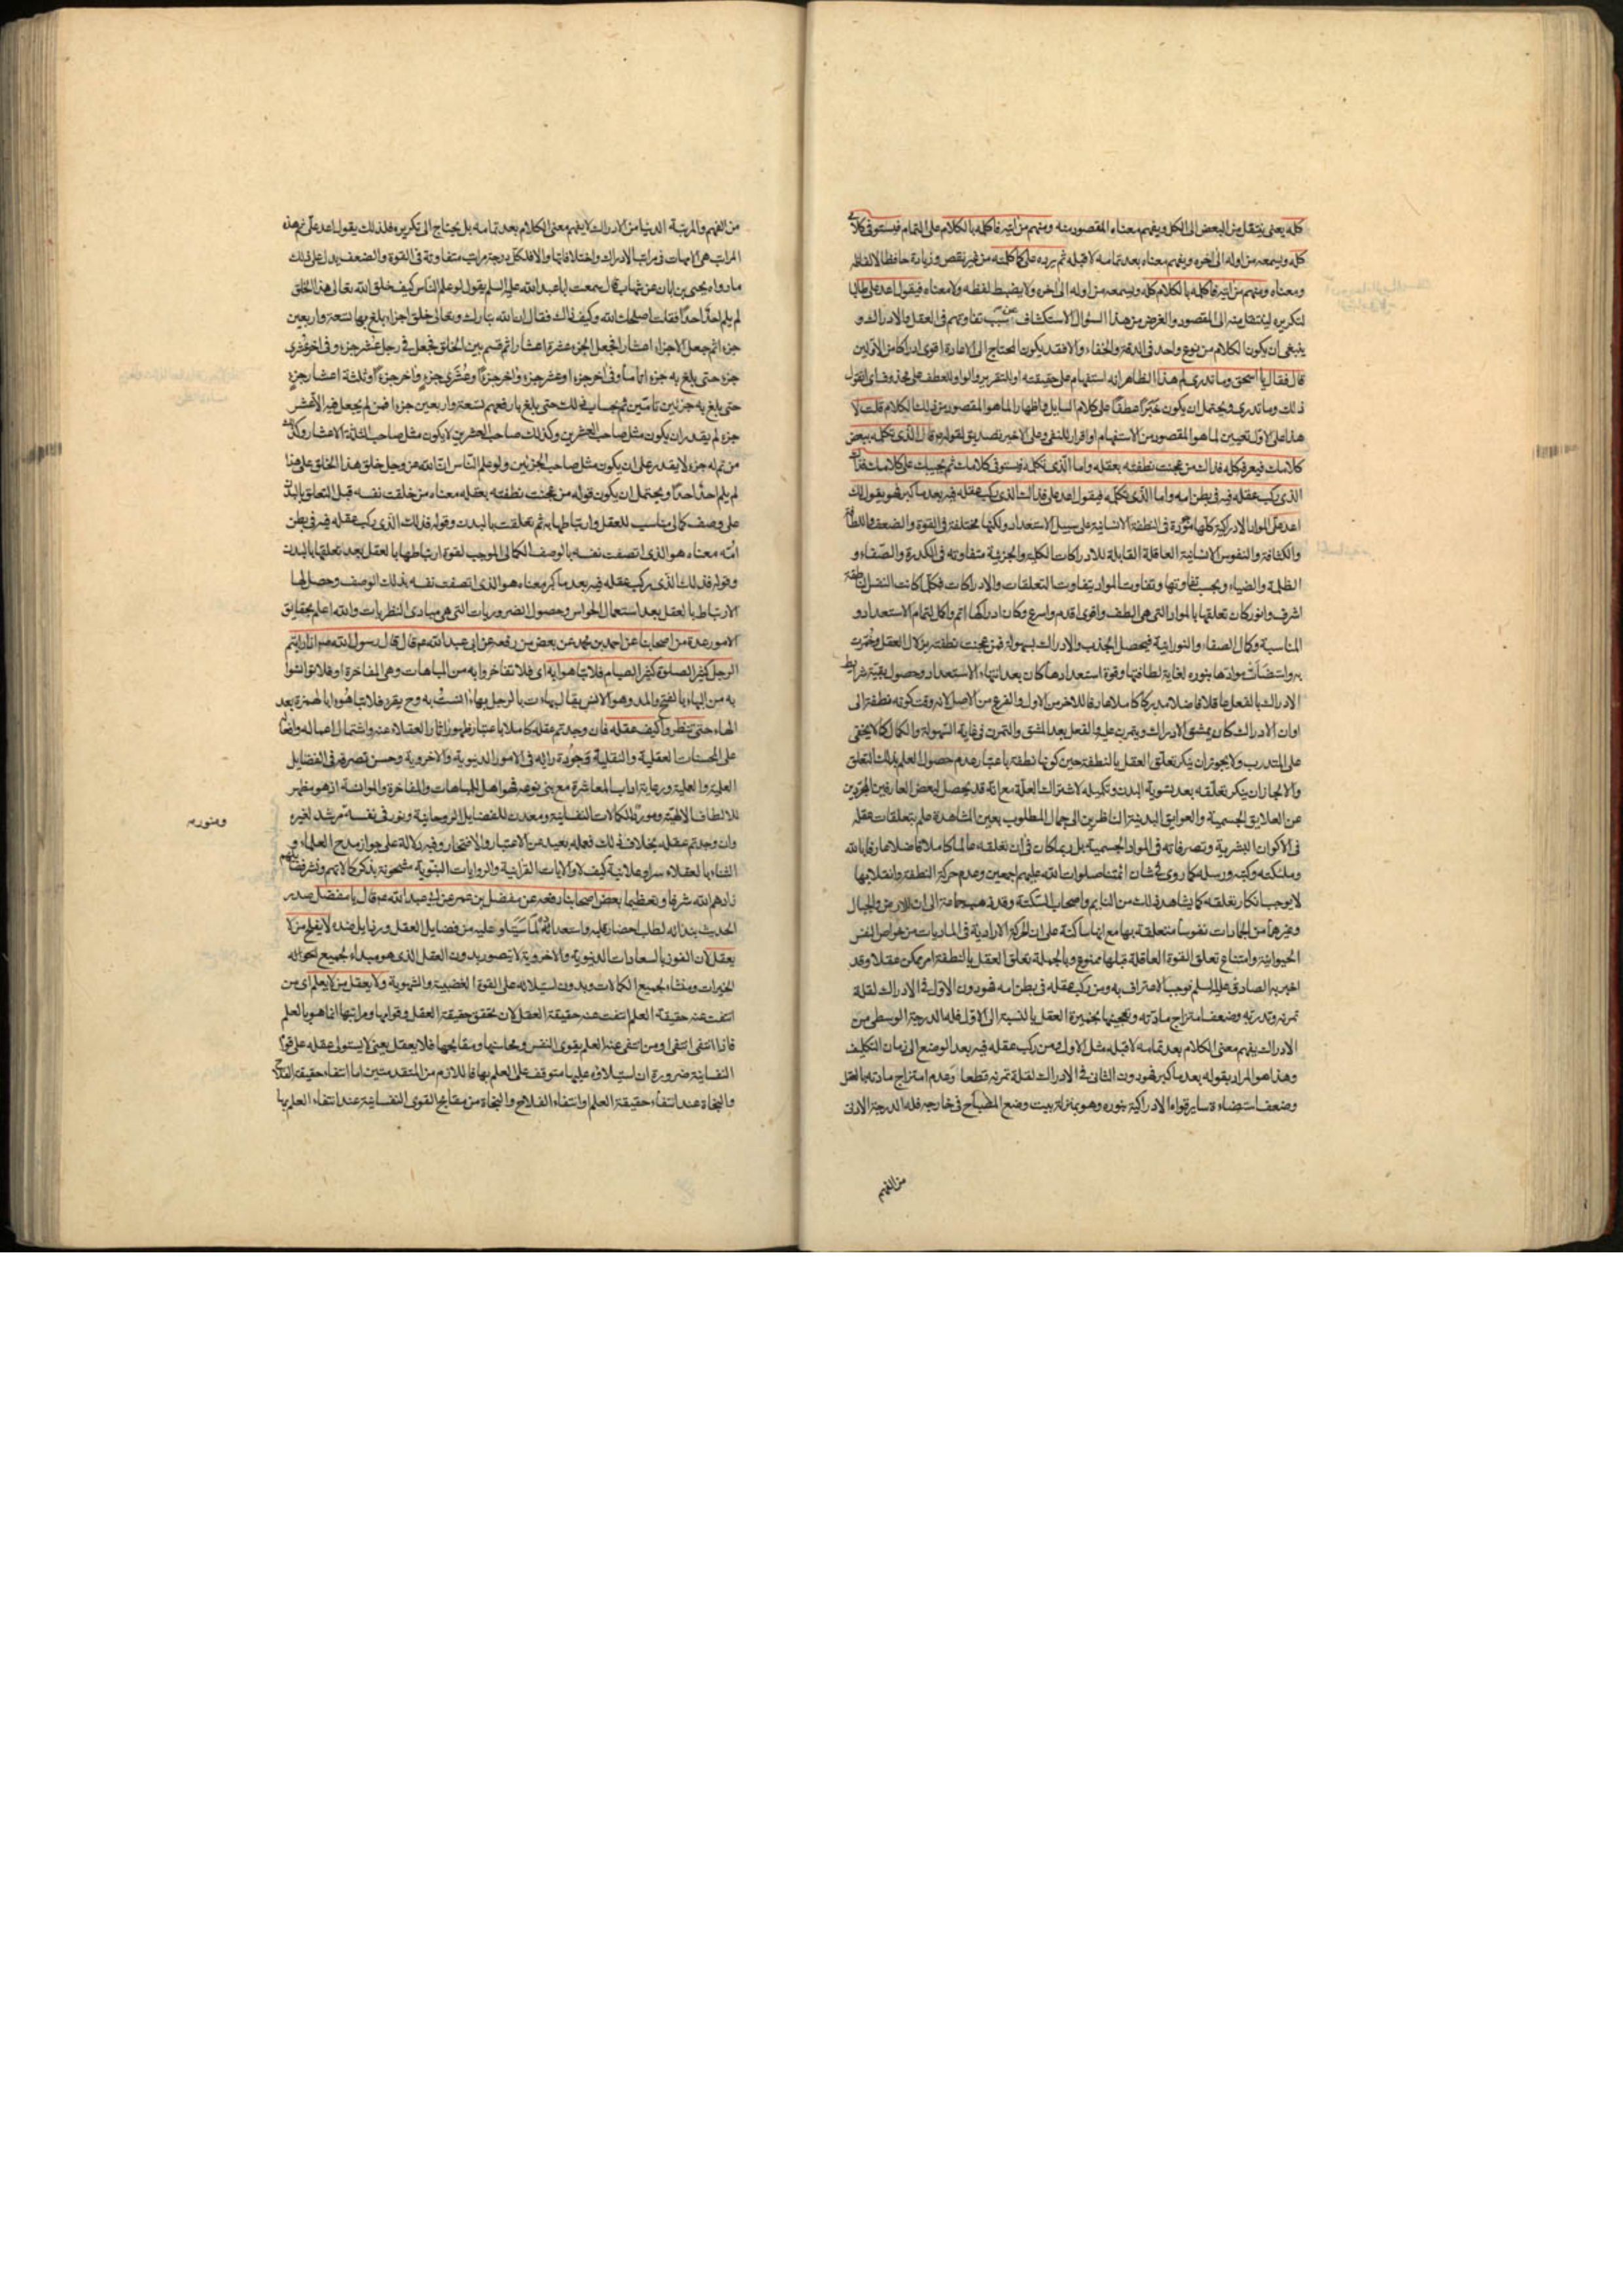 كله يعنى ينتقل من البعض الى الكل ويفهم معناه المقصود منه ومنهم من اتيه فاكلمه بالكلام على التمام فيستوفى كلامى
كله ويسمعه من اوله الى اخره ويفهم معناه بعد تمامه لا قبله ثم يرده على كما كلمته من غير نقص وزيادة حافظا لالفاظه
ومعناه ومنهم من اتيه فاكلمه بالكلام كله ويسمعه من اوله الى اخره ولا يضبط لفظه ولا معناه فيقول اعد على طالبا
لتكريره لينتقل منه الى المقصود والغرض من هذا السؤال الاستكشاف عن سبب تفاوتهم فى العقل والادراك و
ينبغى ان يكون الكلام من نوع واحد فى الدقة والخفاء والا فقد يكون المحتاج الى الاعادة اقوى ادراكا من الاولين
قال فقال يا اسحق وما تدرى لم هذا الظاهر انه استفهام على حقيقته او للتقرير والواو للعطف على محذوف اى اتقول
ذلك وما تدرى ويحتمل ان يكون خبرا عطفا على كلام السايل واظهارا لما هو المقصود من ذلك الكلام قلت لا
هذا على الاول تعيين لما هو المقصود من الاستفهام او اقرار للنفى وعلى الاخير تصديق لقوله قال الذى تكلمه ببعض
كلامك فيعرفه كله فذاك من عجنت نطفته بعقله واما الذى تكلمه فيستوفى كلامك ثم يجيبك على كلامك فذاك
الذى ركب عقله فيه فى بطن امه واما الذى تكلمه فيقول اعد على فذاك الذى ركب عقله فيه بعد ما كبر فهو يقول لك
اعد على المواد الادراكية كلها فى النطفة الانسانية على سبيل الاستعداد ولكنها مختلفة فى القوة والضعف واللطافة
والكثافة والنفوس الانسانية العاقلة القابلة للادراكات الكلية والجزئية متفاوتة فى الكدرة والصفاء و
الظلمة والضياء وبحسب تفاوتها وتفاوت المواد يتفاوت التعلقات والادراكات فكلما كانت النفس الناطقة
اشرف وانور كان تعلقها بالمواد التى هى الطف واقوى اقدم واسرع وكان ادراكها اتم واكمل لتمام الاستعداد و
المناسبة وكمال الصفاء والنورانية فيحصل الجذب والادراك بسهولة فمن عجنت نطفته من العقل وخمرت
به واستضاءت موادها بنوره لغاية لطافتها وقوة استعدادها كان بعد انتهاء الاستعداد وحصول بقية شرايط
الادراك بالفعل عاقلا فاضلا مدركا كاملا عارفا للاخر من الاول والفرع من الاصل لانه وقت كونه نطفة الى
اوان الادراك كان يمشق الادراك ويتمرن عليه والفعل بعد المشق والتمرن فى غاية السهولة والكمال كما لا يخفى
على المتدرب ولا يجوز ان ينكر تعلق العقل بالنطفة حين كونها نطفة باعتبار عدم حصول العلم بذلك التعلق
والا لجاز ان ينكر تعلقه بعد تسوية البدن وتكميله لاشتراك العلة مع انه قد يحصل لبعض العارفين المجردين
عن العلايق الجسمية والعوايق البدنية الناظرين الى جمال المطلوب بعين المشاهدة علم بتعلقات عقله
فى الاكوان البشرية وتصرفاته فى المواد الجسمية بل ربما كان فى ان تعلقه عالما كاملا فاضلا عارفا بالله
وملئكته وكتبه ورسله كما روى فى شان ائمتنا صلوات الله عليهم اجمعين وعدم حركة النطفة وانقلابها
لا يوجب انكار تعلقه كما يشاهد ذلك من النايم واصحاب السكتة وقد ذهب جماعة الى ان للارض والجبال
وغيرها من الجمادات نفوسا متعلقة بها مع انها ساكنة على ان الحركة الارادية فى الماديات من خواص النفس
الحيوانية وامتناع تعلق القوة العاقلة قبلها ممنوع وبالجملة تعلق العقل بالنطفة امر ممكن عقلا وقد
اخبر به الصادق عليه السلم فوجب الاعتراف به ومن ركب عقله فى بطن امه فهو دون الاول فى الادراك لقلة
تمرنه وتدربه وضعف امتزاج مادته وتعجينها بخميرة العقل بالنسبة الى الاول فله الدرجة الوسطى من
الادراك يفهم معنى الكلام بعد تمامه لا قبله مثل الاول ومن ركب عقله فيه بعد الوضع الى زمان التكليف
وهذا هو المراد بقوله بعد ما كبر فهو دون الثانى فى الادراك لقلة تمرنه قطعا وعدم امتزاج مادته بالعقل
وضعف استضاءة ساير قواه الادراكية بنوره وهو بمنزلة بيت وضع المصباح فى خارجه فله الدرجة الادنى
من الفهم
من الفهم والمرتبة الدنيا من الادراك لا يفهم معنى الكلام بعد تمامه بل يحتاج الى تكريره فلذلك يقول اعد على ثم هذه
المراتب هى الامهات فى مراتب الادراك واختلافاتها والا فلكل درجة مراتب متفاوتة فى القوة والضعف يدل على ذلك
ما رواه يحيى بن ابان عن شهاب قال سمعت ابا عبد الله عليه السلم يقول لو علم الناس كيف خلق الله تعالى هذا الخلق
لم يلم احد احدا فقلت اصلحك الله وكيف ذاك فقال ان الله تبارك وتعالى خلق اجزاء بلغ بها تسعة واربعين
جزءا ثم جعل الاجزاء اعشارا فجعل الجزء عشرة اعشار ثم قسمه بين الخلق فجعل فى رجل عشر جزء وفى اخر عشرى
جزء حتى بلغ به جزء تاما وفى اخر جزءا وعشر جزء واخر جزءا وعشرى جزء واخر جزءا وثلثة اعشار جزء
حتى بلغ به جزئين تامين ثم بحساب ذلك حتى بلغ بارفعهم تسعة واربعين جزءا فمن لم يجعل فيه الا عشر
جزء لم يقدر ان يكون مثل صاحب العشرين وكذلك صاحب العشرين لا يكون مثل صاحب الثلثة الاعشار وكذلك
من تم له جزء لا يقدر على ان يكون مثل صاحب الجزئين ولو علم الناس ان الله عز وجل خلق هذا الخلق على هذا
لم يلم احد احدا ويحتمل ان يكون قوله من عجنت نطفته بعقله معناه من خلقت نفسه قبل التعلق بالبدن
على وصف كمالى مناسب للعقل وارتباطها به ثم تعلقت بالبدن وقوله فذلك الذى ركب عقله فيه فى بطن
امه معناه هو الذى اتصفت نفسه بالوصف الكمالى الموجب لقوة ارتباطها بالعقل بعد تعلقها بالبدن
وقوله فذلك الذى ركب عقله فيه بعد ما كبر معناه هو الذى اتصفت نفسه بذلك الوصف وحصل لها
الارتباط بالعقل بعد استعمال الحواس وحصول الضروريات التى هى مبادى النظريات والله اعلم بحقايق
الامور عدة من اصحابنا عن احمد بن محمد عن بعض من رفعه عن ابى عبد الله ع قال قال رسول الله ص اذا رايتم
الرجل كثير الصلوة كثير الصيام فلا تباهوا به اى فلا تفاخروا به من المباهات وهى المفاخرة او فلا تؤانسوا
به من البهاء بالفتح والمد وهو الانس يقال بهاءت بالرجل بهاء انست به وح يقرء فلا تباهؤا به بالهمزة بعد
الهاء حتى تنظروا كيف عقله فان وجدتم عقله كاملا باعتبار ظهور اثار العقلاء عنه واشتمال اعماله وافعاله
على المحسنات العقلية والنقلية وجودة رايه فى الامور الدنيوية والاخروية وحسن تصرفه فى الفضايل
العلمية والعملية ورعاية اداب المعاشرة مع بنى نوعه فهو اهل للمباهات والمفاخرة والموانسة اذ هو مظهر
للالطاف الالهية ومورد للكمالات النفسانية ومعدن للفضايل الروحانية ونور فى نفسه مرشد لغيره
ومنور
وان وجدتم عقله بخلاف ذلك فعله بعيد عن الاعتبار والافتخار وفيه دلالة على جواز مدح العلماء و
الثناء بالعقلاء سرا وعلانية كيف لا والايات القرانية والروايات النبوية مشحونة بذكر كمالاتهم وشرفهم
زادهم الله شرفا وتعظيما بعض اصحابنا رفعه عن مفضل بن عمر عن ابى عبد الله ع قال يا مفضل صدر
الحديث بندائه لطلب احضار قلبه واستعداده لما سيتلو عليه من فضايل العقل ورذايل ضده لا يفلح من لا
يعقل لان الفوز بالسعادات الدنيوية والاخروية لا يتصور بدون العقل الذى هو مبداء لجميع
الخيرات ومنشاء لجميع الكمالات وبدون استيلائه على القوة الغضبية والشهوية ولا يعقل من لا يعلم اى من
انتفت عنه حقيقة العلم انتفت عنه حقيقة العقل لان تحقق حقيقة العقل وقوامها ومراتبها انما هو بالعلم
فاذا انتفى انتفى او من انتفى عنه العلم بقوى النفس ومحاسنها ومقابحها فلا يعقل يعنى لا يستولى عقله على قواه
النفسانية ضرورة ان استيلاؤه عليها متوقف على العلم بها فاللازم من المتقدمتين اما انتفاء حقيقة الفلاح
والنجاة عند انتفاء حقيقة العلم او انتفاء الفلاح والنجاة من مقابح القوى النفسانية عند انتفاء العلم بها